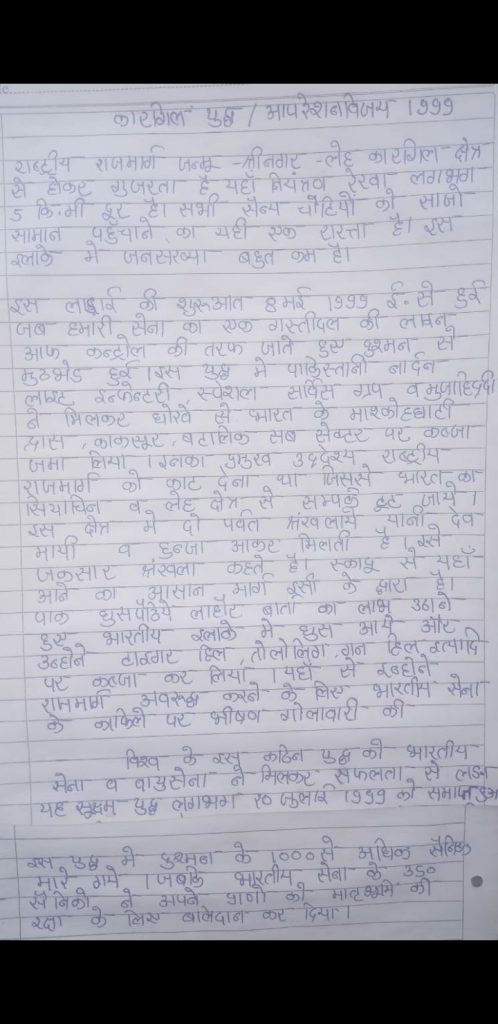 कारगिल युद्ध / आपरेशनविजय 1999
राष्ट्रीय राजमार्ग जम्मू -श्रीनगर -लेह कारगिल क्षेत्र
से होकर गुजरता है यहाँ नियंत्रव रेखा लगभग
5 कि.मी दूर है। सभी सैन्य चोटियो को साजो
सामान पहुंचाने का यही एक रास्ता है। इस
इलाके मे जनसख्या बहुत कम है।
इस लाड़ाई की शुरूआत 8 मई 1999 ई. से हुई
जब हमारी सेना का एक गस्तीदल की लाइन
आफ कन्ट्रोल की तरफ जाते हुए दुश्मन से
मुठभेड हुई । इस युद्ध मे पाकिस्तानी नार्दन
लाइट इन्फेन्टरी, स्पेशल सर्विस ग्रुप व मुजाहिद्दी
ने मिलकर धोखे से भारत के माश्कोहघाटी
द्रास , काकसूर , बटालिक सब सेक्टर पर कब्जा
जमा लिया । इनका प्रमुख उद्देश्य राष्ट्रीय
राजमार्ग को काट देना था जिससे भारत का
सियाचिन व लेह क्षेत्र से सम्पर्क टूट जाये ।
इस क्षेत्र मे दो पर्वत श्रंखलाये यानी देव
मायी व हुन्जा आकर मिलती है । इसे
जकसार श्रंखला कहते है। स्कार्दू से यहाँ
आने का आसान मार्ग इसी के द्वारा है।
पाक घुसपैठिये लाहौट बार्ता का लाभ उठाते
हुए भारतीय इलाके मे घुस आये और
उन्होने टाइगर हिल, तोलोलिंग, गन हिल इत्यादि
पर कब्जा कर लिया । यहाँ से इन्होने
राजमार्ग अवरुद्ध करने के लिए भारतीय सेना
के काफिले पर भीषण गोलाबारी की
विश्व के इस कठिन युद्ध को भारतीय
सेना व वायुसेना ने मिलकर सफलता से लड़ा
यह युद्ध लगभग 10 जुलाई 1999 को समाप्त हुआ
इस युद्ध मे दुश्मन के 1000 से अधिक सैनिक
मारे गये । जबकि भारतीय सेना के 330
सैनिको ने अपने प्राणो को मातृभूमि की
रक्षा के लिए बलिदान कर दिया ।